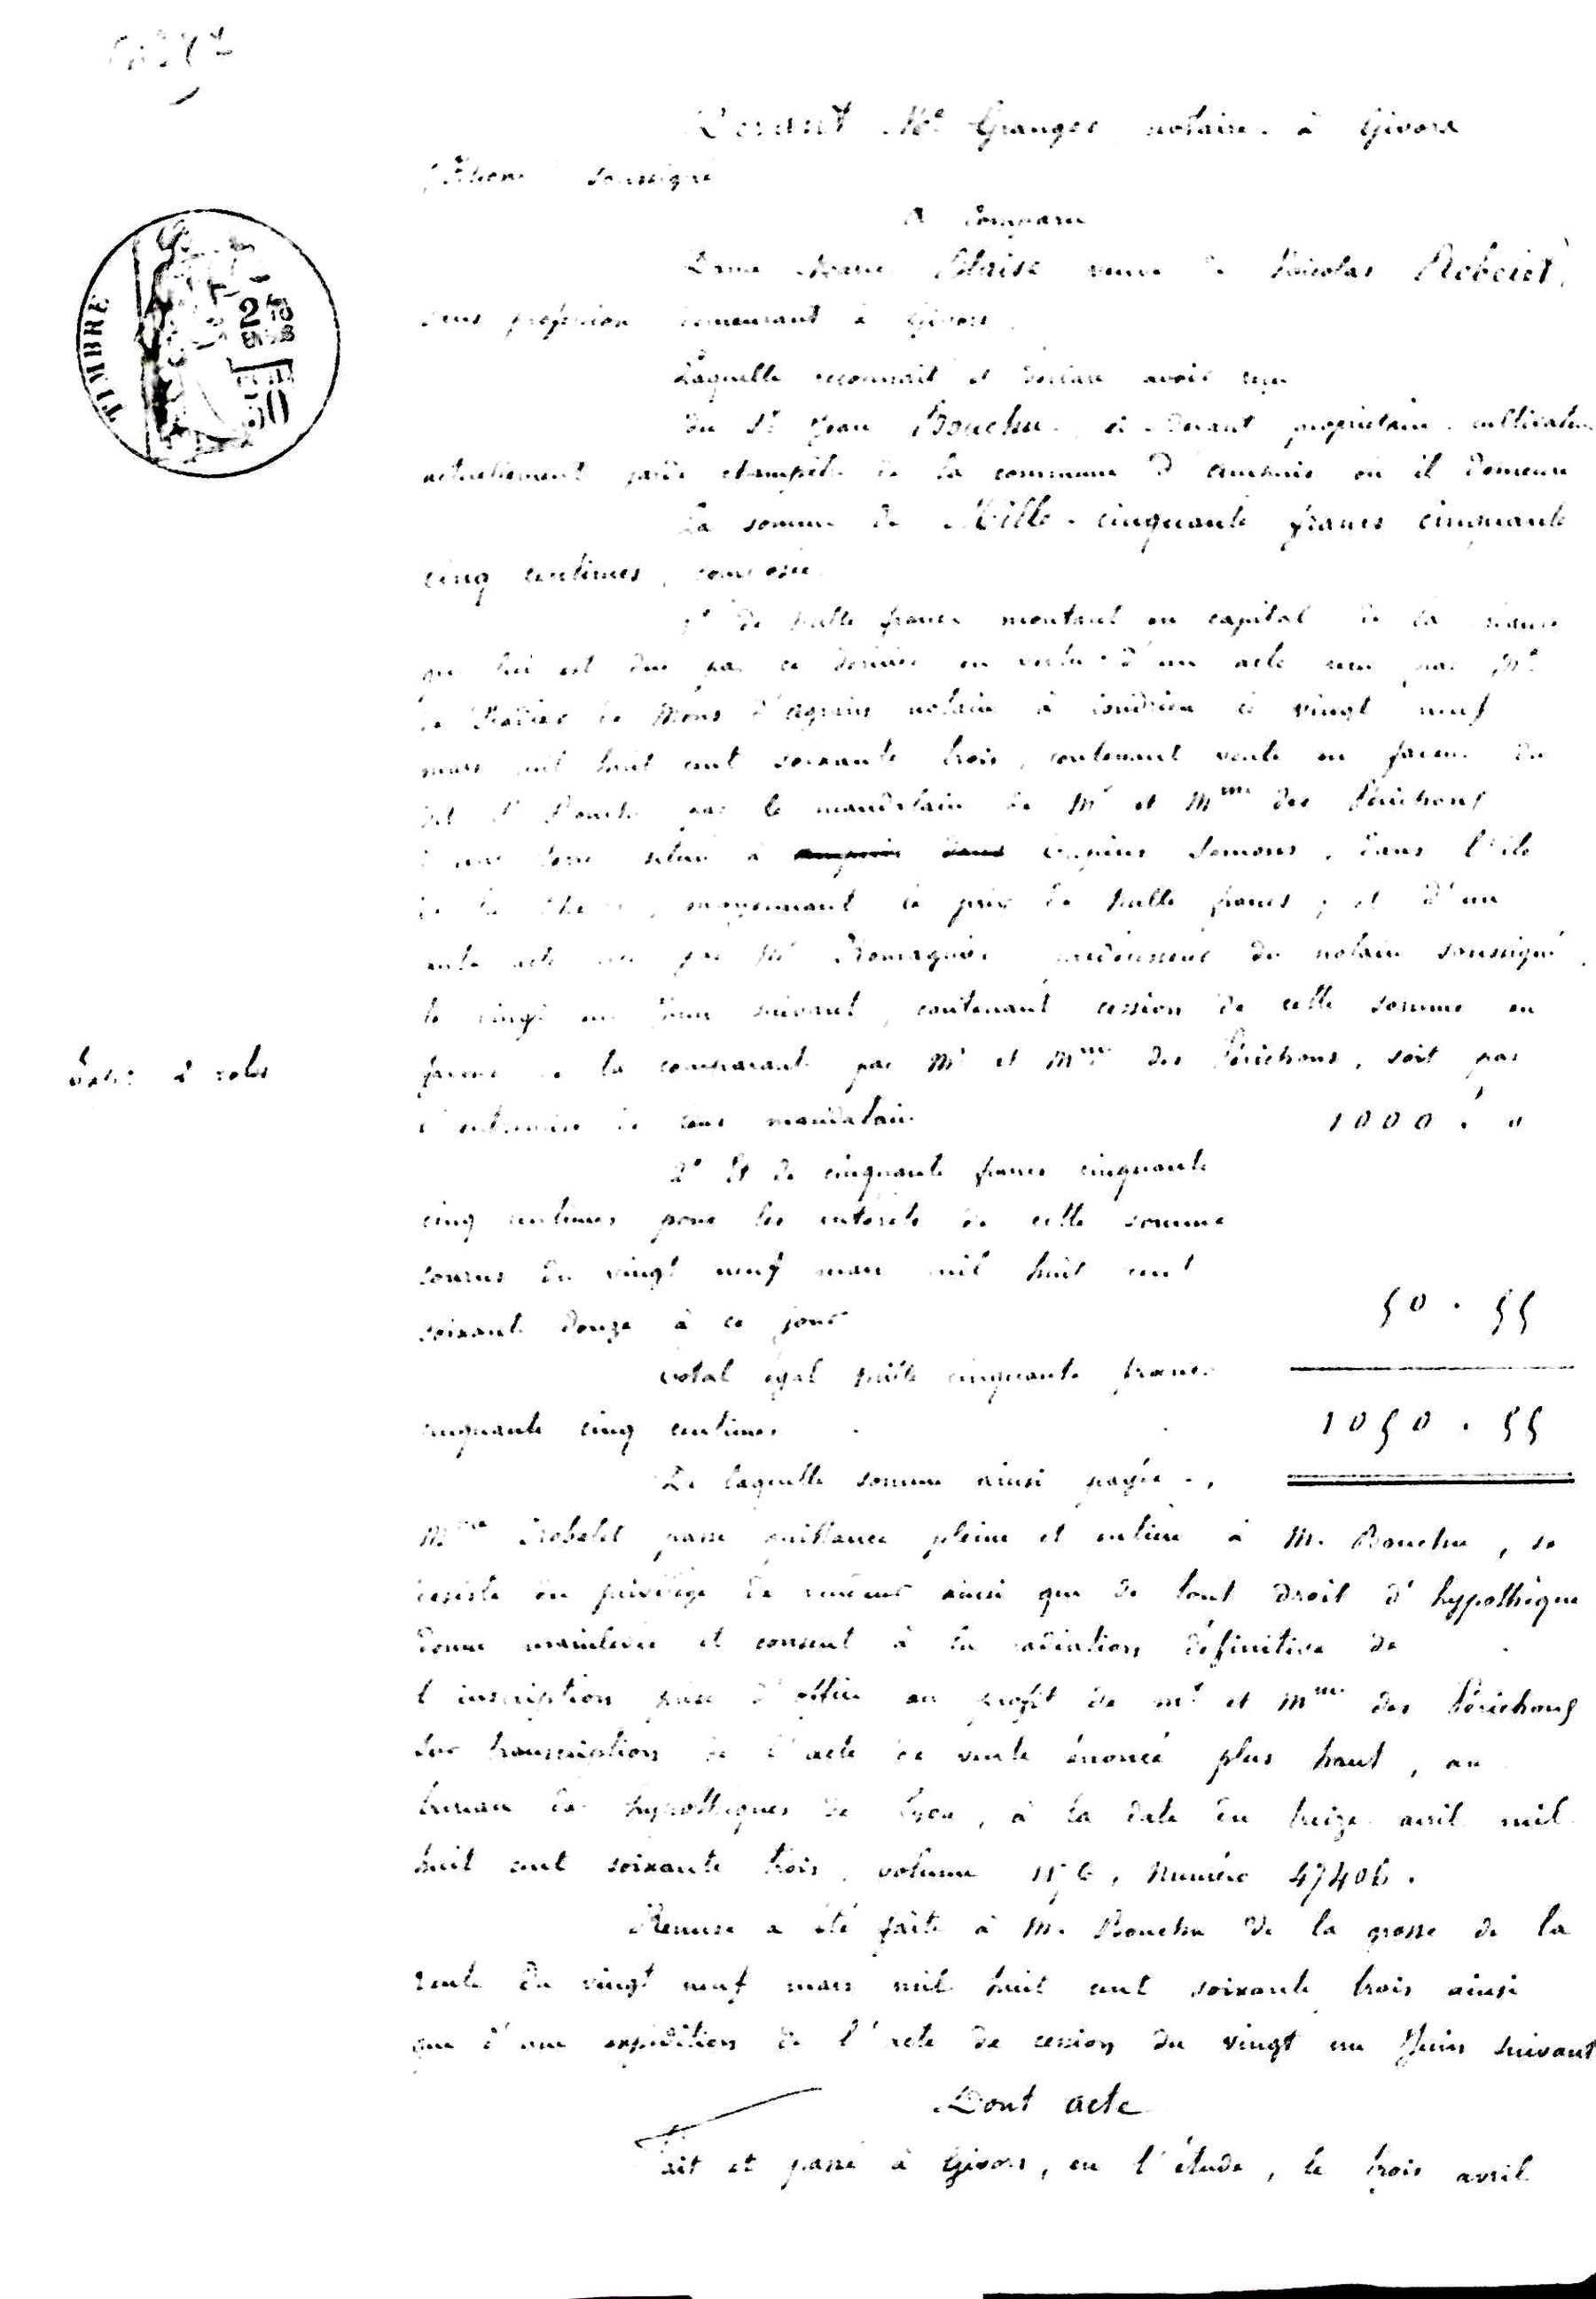 Devant Me Granger notaire à Givors
(Rhône) soussigné
A comparu
Dame Blaise veuve de Nicolas Robelet,
sans profession demeurant à Givors.
Laquelle reconnait et déclare avoir reçu
du Sr Jean Bouchu ci devant propriétaire cultivateur
actuellement garde champêtre de la commune d'Ampuis où il demeure
La somme de Mille cinquante francs cinquante
cinq centimes, composée
1° de mille francs montant en capital de la
qui lui est due par ce dernier en vertu d'un acte reçu par Me
notaire à Condrieu le vingt neuf
mars mil huit cent soixante trois, contenant vente en faveur du
dit Sr Bouchu par le mandataire de Mr et Mme des Périchons
d'une terre située à Tupins Semons, dans l'ile
de la, moyennant le prix de mille francs ; et d'un
autre acte reçu par Me prédécesseur du notaire soussigné
le vingt un Juin suivant, contenant cession de cette somme en
faveur de la comparante par Mr et Mme des Périchons, soit par
l'entremise de leur mandataire 1000. "
2° Et de cinquante francs cinquante
cinq centimes pour les intérêts de cette somme
courus du vingt neuf mars mil huit cent
soixante douze à ce jour 50.55
Total égal mille cinquante francs
cinquante cinq centimes 1050.55
De laquelle somme ainsi payée,
Mme Robelet passe quittance pleine et entière à M. Bouchu, se
désiste du privilège de vendeur ainsi que de tout droit d'hypothèque
donne mainlevée et consent à la radiation définitive de
l'inscription prise d'office au profit de Mr et Mme des Périchons
sur transcription de l'acte de vente énoncé plus haut, au
bureau des hypothèques de Lyon, à la date du treize avril mil
huit cent soixante trois, volume numéro 47406.
Remise a été faite à M. Bouchu de la grosse de la
vente du vingt neuf mars mil huit cent soixante trois ainsi
que d'une expédition de l'acte de cession du vingt un Juin suivant
Dont acte
Fait et passé à Givors, en l'étude, le trois avril
TIMBRE
50